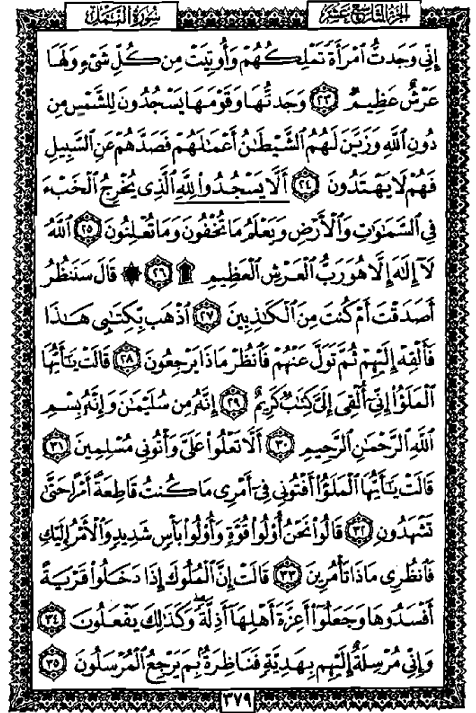 الجزء التاسع عشر سورة النمل
إِنِّي وَجَدتُّ ٱمْرَأَةً تَمْلِكُهُمْ وَأُوتِيَتْ مِن كُلِّ شَىْءٍ وَلَهَا
عَرْشٌ عَظِيمٌ ٢٣ وَجَدتُّهَا وَقَوْمَهَا يَسْجُدُونَ لِلشَّمْسِ مِن
دُونِ ٱللَّهِ وَزَيَّنَ لَهُمُ ٱلشَّيْطَٰنُ أَعْمَٰلَهُمْ فَصَدَّهُمْ عَنِ ٱلسَّبِيلِ
فَهُمْ لَا يَهْتَدُونَ ٢٤ أَلَّا يَسْجُدُوا۟ لِلَّهِ ٱلَّذِى يُخْرِجُ ٱلْخَبْءَ
فِى ٱلسَّمَٰوَٰتِ وَٱلْأَرْضِ وَيَعْلَمُ مَا تُخْفُونَ وَمَا تُعْلِنُونَ ٢٥ ٱللَّهُ
لَآ إِلَٰهَ إِلَّا هُوَ رَبُّ ٱلْعَرْشِ ٱلْعَظِيمِ ۩ ٢٦ ۞ قَالَ سَنَنظُرُ
أَصَدَقْتَ أَمْ كُنتَ مِنَ ٱلْكَٰذِبِينَ ٢٧ ٱذْهَب بِّكِتَٰبِى هَٰذَا
فَأَلْقِهْ إِلَيْهِمْ ثُمَّ تَوَلَّ عَنْهُمْ فَٱنظُرْ مَاذَا يَرْجِعُونَ ٢٨ قَالَتْ يَٰٓأَيُّهَا
ٱلْمَلَؤُا۟ إِنِّىٓ أُلْقِىَ إِلَىَّ كِتَٰبٌ كَرِيمٌ ٢٩ إِنَّهُۥ مِن سُلَيْمَٰنَ وَإِنَّهُۥ بِسْمِ
ٱللَّهِ ٱلرَّحْمَٰنِ ٱلرَّحِيمِ ٣٠ أَلَّا تَعْلُوا۟ عَلَىَّ وَأْتُونِى مُسْلِمِينَ ٣١
قَالَتْ يَٰٓأَيُّهَا ٱلْمَلَؤُا۟ أَفْتُونِى فِىٓ أَمْرِى مَا كُنتُ قَاطِعَةً أَمْرًا حَتَّىٰ
تَشْهَدُونِ ٣٢ قَالُوا۟ نَحْنُ أُو۟لُوا۟ قُوَّةٍ وَأُو۟لُوا۟ بَأْسٍ شَدِيدٍ وَٱلْأَمْرُ إِلَيْكِ
فَٱنظُرِى مَاذَا تَأْمُرِينَ ٣٣ قَالَتْ إِنَّ ٱلْمُلُوكَ إِذَا دَخَلُوا۟ قَرْيَةً
أَفْسَدُوهَا وَجَعَلُوٓا۟ أَعِزَّةَ أَهْلِهَآ أَذِلَّةً ۖ وَكَذَٰلِكَ يَفْعَلُونَ ٣٤
وَإِنِّى مُرْسِلَةٌ إِلَيْهِم بِهَدِيَّةٍ فَنَاظِرَةٌۢ بِمَ يَرْجِعُ ٱلْمُرْسَلُونَ ٣٥
٣٧٩